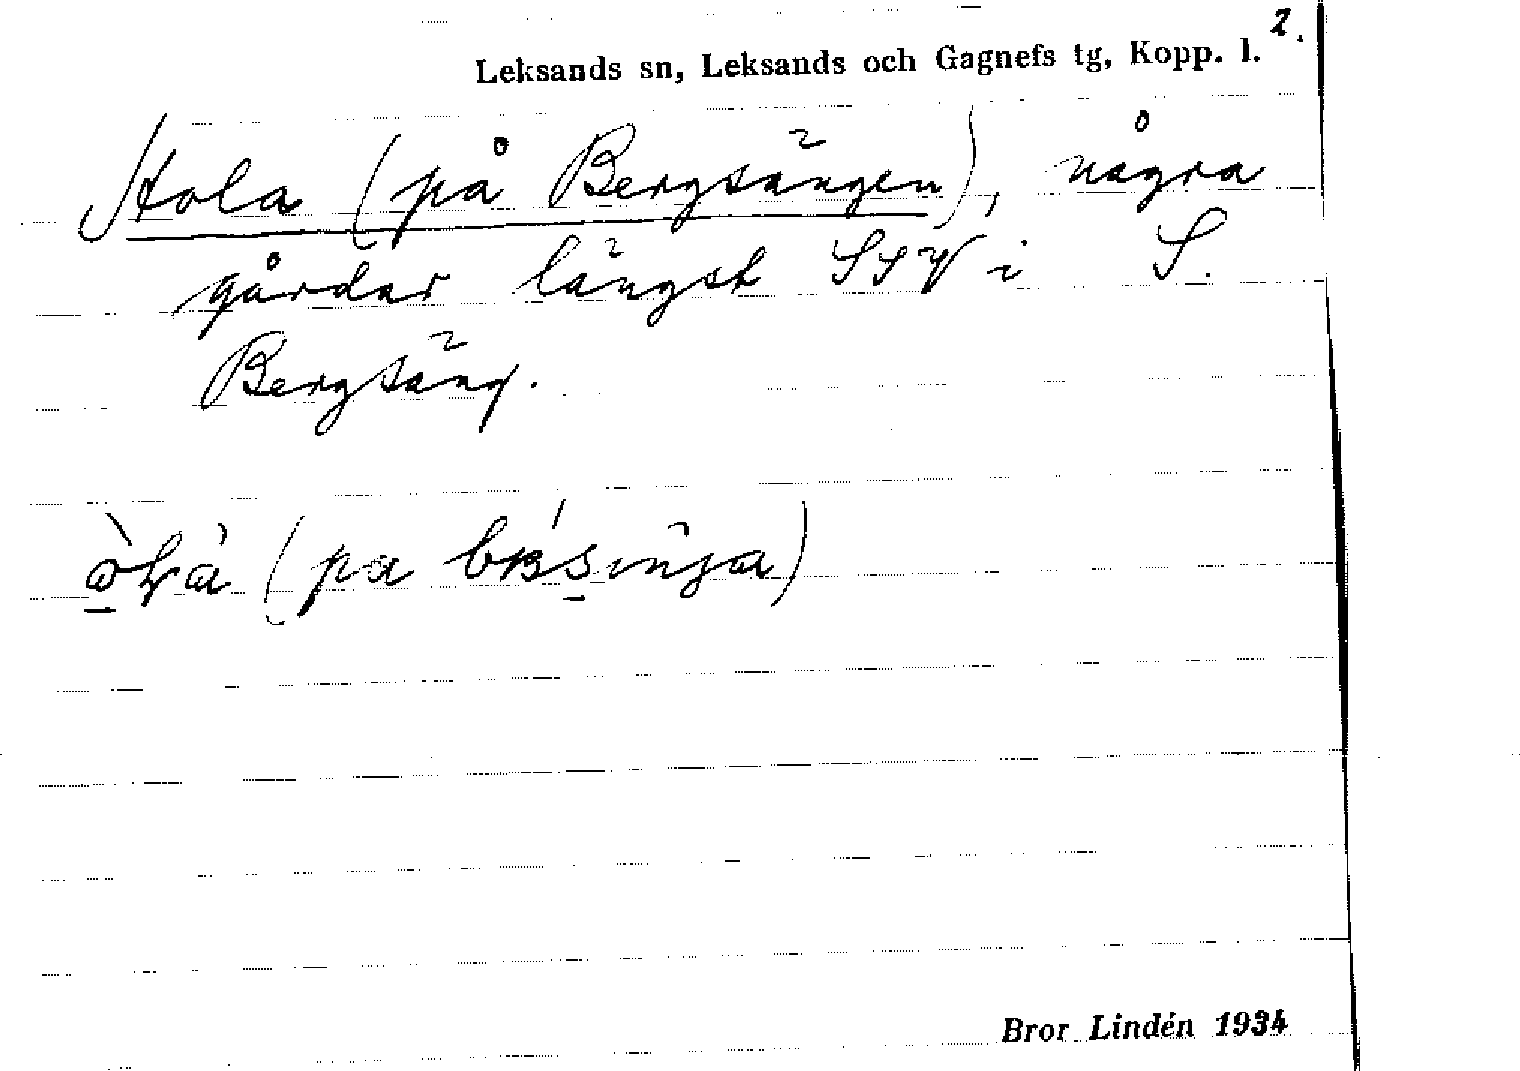 2.
Leksands sn, Leksands och Gagnefs tg, Kopp. l.
Hola (på Bergsängen), några
gårdar längst SSV i S.
Bergsäng.
(pa
Bror Lindén 1934